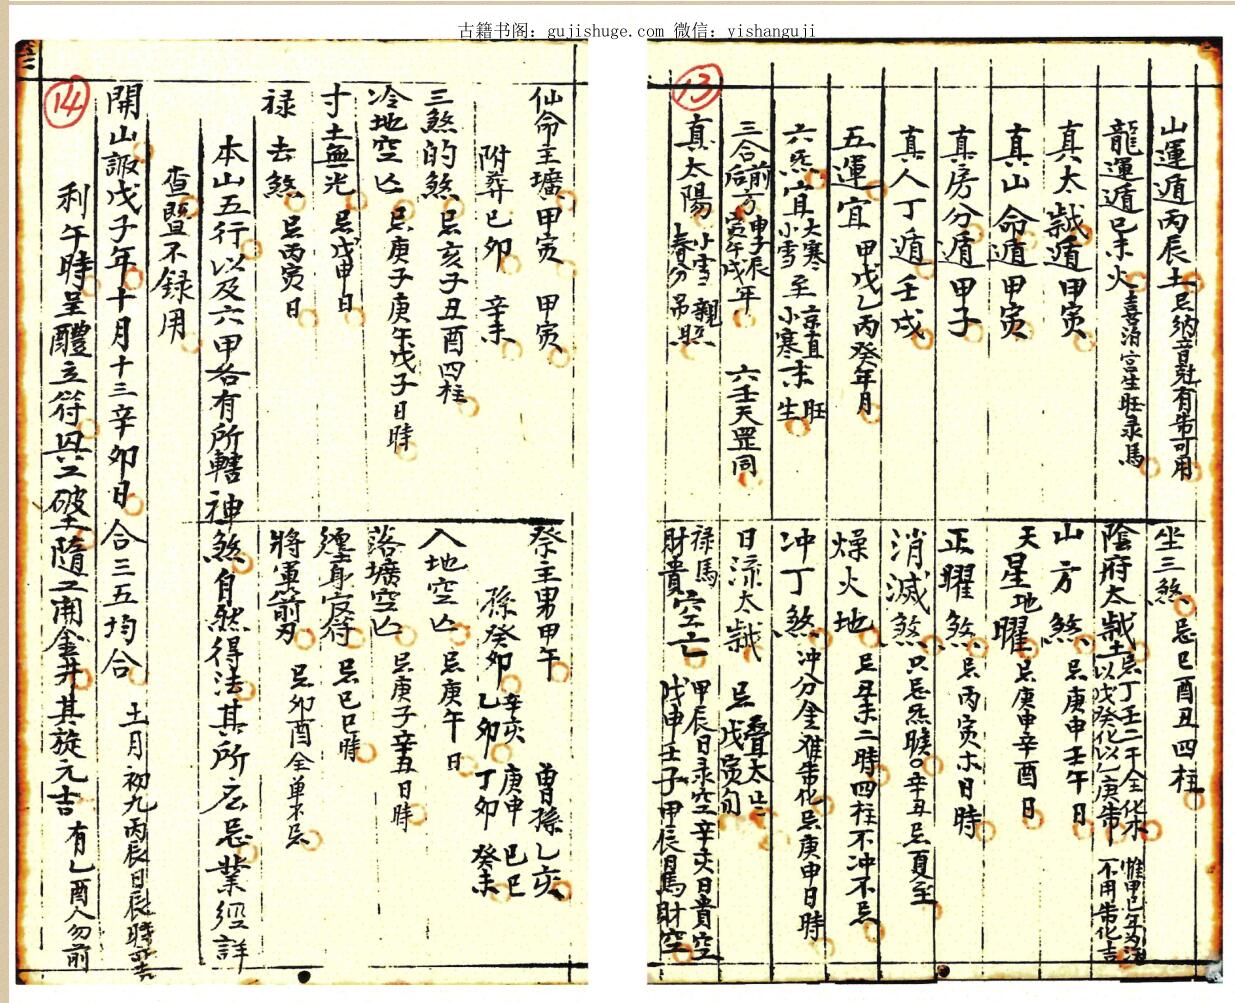 古籍书阁：gujishuge.com 微信：yishanguji
13
山運遁丙辰土 忌納音尅有制可用
龍運遁巳未火 喜泊宮生旺录馬
真太歲遁甲寅
真山命遁甲寅
真房分遁甲子
真人丁遁壬戌
五運宜 甲戊乙丙癸年月
六炁宜 大寒 小雪 至 京直 小寒 未 旺 生
三合 前方 申子辰 后 寅午戌 年 六壬天罡同
真太陽 小雪 親照 春分 吊照
坐三煞 忌巳酉丑四柱
陰府太歲 土忌丁壬二干全化木 以戊癸化以庚制 惟甲巳年为 不用制化吉
山方煞 忌庚申壬午日
天星地曜 忌庚申辛酉日
正曜煞 忌丙寅木日時
消滅煞 只忌炁睺 辛丑忌夏至
燥火地 忌丑未二時四柱不冲不忌
冲丁煞 冲分金难制化忌庚申日時
日流太歲 忌 疊太 戊寅旬
禄馬財貴空亡 甲辰日录空辛亥日貴空 戊申壬子甲辰日馬財空
14
仙命主壙甲寅 甲寅
附葬巳卯 辛未
三煞的煞 忌亥子丑酉四柱
冷地空亡 忌庚子庚午戊子日時
寸土無光 忌戊申日
禄去煞 忌丙寅日
祭主男甲午 曾孫乙亥
孫癸卯 辛亥 乙卯 庚申 丁卯 巳巳 癸未
入地空亡 忌庚午日
落壙空亡 忌庚子辛丑日時
纏身官符 忌巳巳時
將軍箭刃 忌卯酉全单不忌
本山五行以及六甲各有所轄神煞自然得法其所忌業經詳
查暨不録用
開山諏戊子年十月十三辛卯日合三五均合 土月初九丙辰日辰時吉
利午時呈醴立符興工破土隨工開金井其旋元吉 有乙酉人勿前